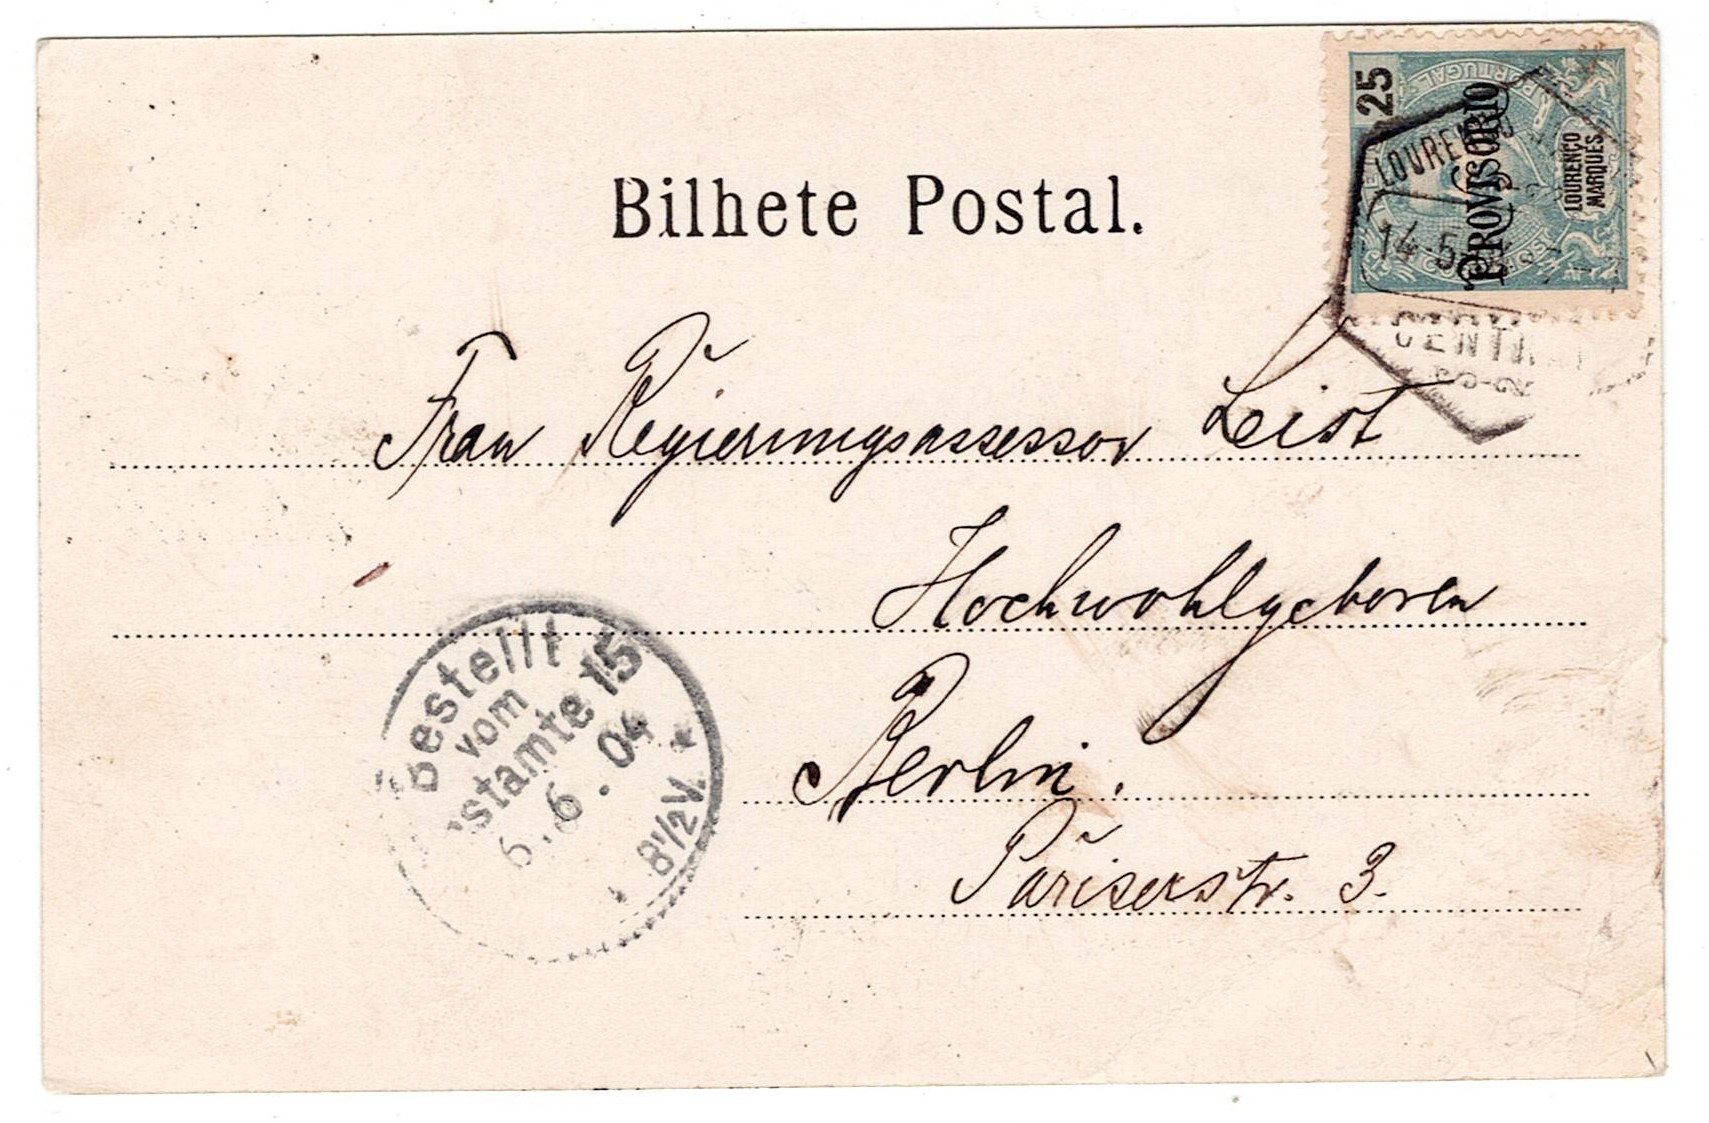 Bilhete Postal.
25
PORTUGAL
PROVISORIO
LOURENÇO
MARQUES
LOURENÇO
14-5
CENTR
Frau Regierungsassessor Leist
Hochwohlgeboren
Berlin.
Pariserstr. 3.
Bestellt
vom
stamte 15
6.6.04
8½V.